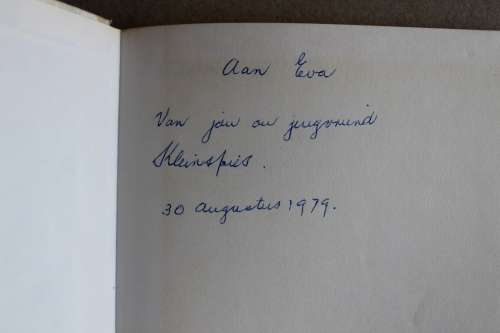 Aan Eva
Van jou ou jeugvriend
Kleinspies.
30 Augustus 1979.